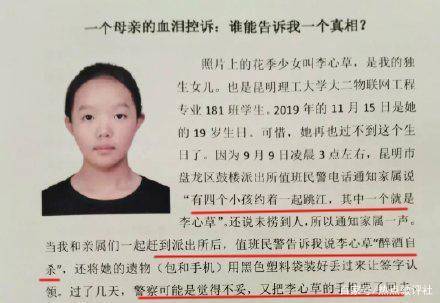 一个母亲的血泪控诉：谁能告诉我一个真相？
照片上的花季少女叫李心草，是我的独
生女儿。也是昆明理工大学大二物联网工程
专业 181 班学生。2019 年的 11 月 15 日是她
的 19 岁生日。可惜，她再也过不到这个生
日了。因为 9 月 9 日凌晨 3 点左右，昆明市
盘龙区鼓楼派出所值班民警电话通知家属说
“有四个小孩约着一起跳江，其中一个就是
李心草”。还说未捞到人，所以通知家属一声。
当我和亲属们一起赶到派出所后，值班民警告诉我说李心草“醉酒自
杀”，还将她的遗物（包和手机）用黑色塑料袋装好丢过来让签字认
领。过了几天，警察可能是觉得不妥，又把李心草的手